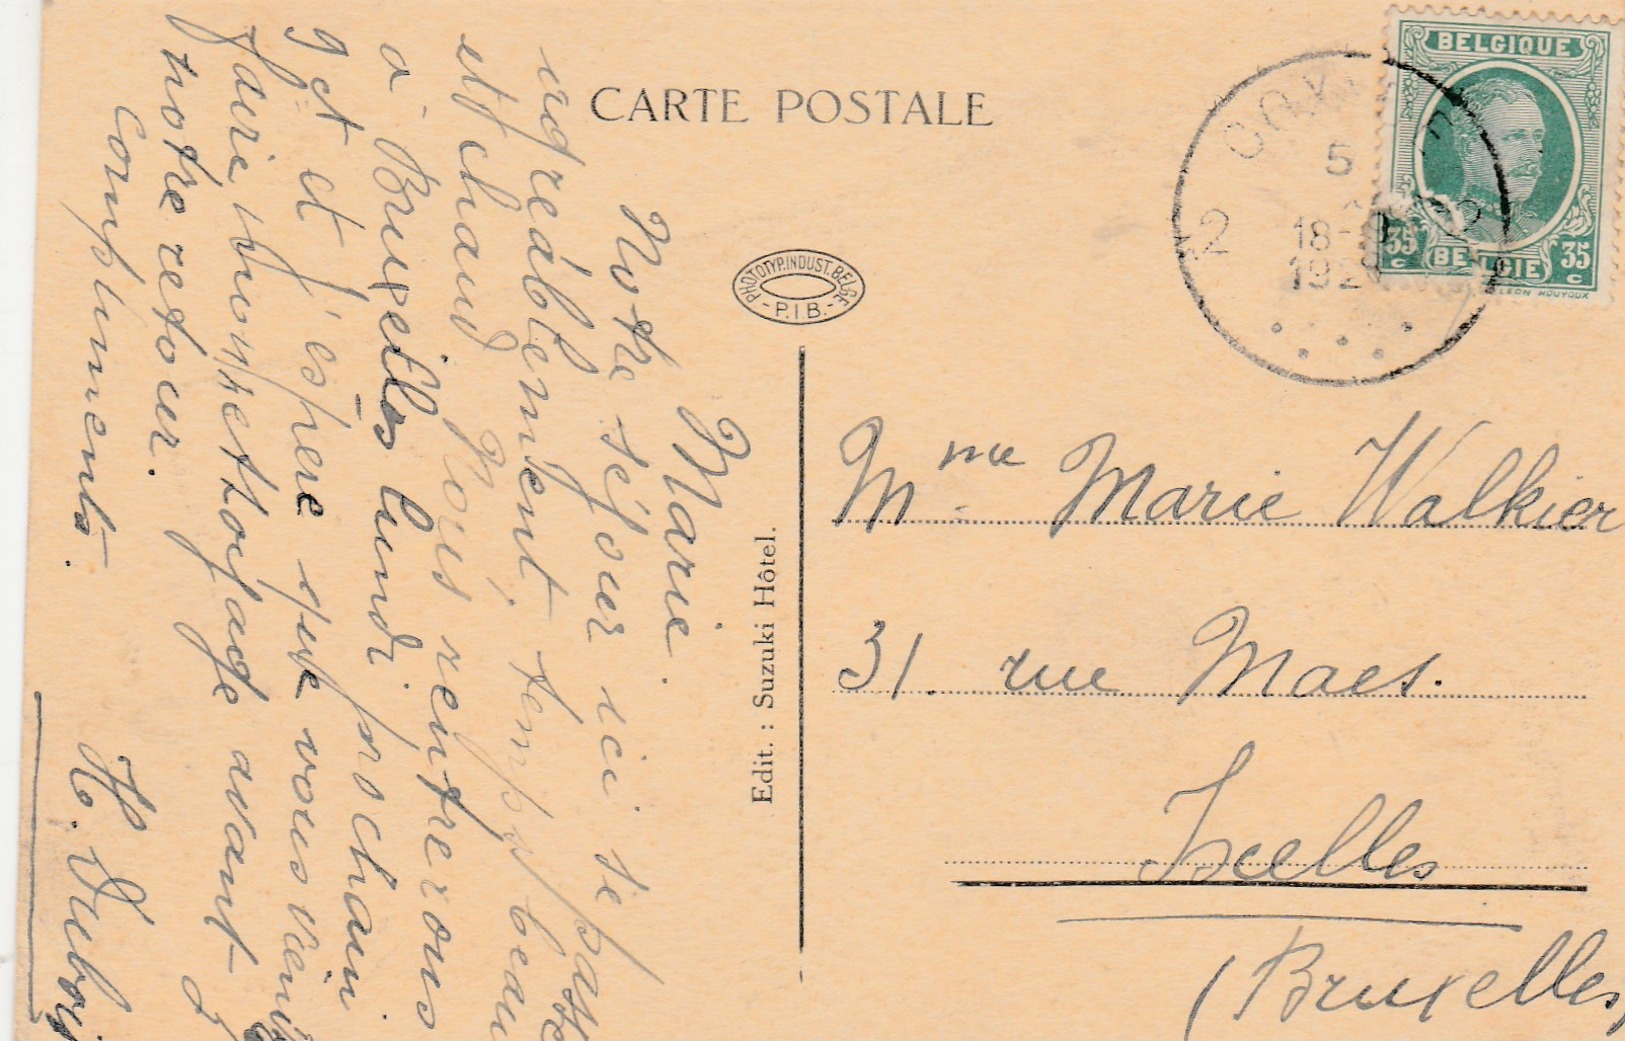 CARTE POSTALE
BELGIQUE
35 c
35 c
BELGIE
LEON HOUYOUX
5
18-
192
PHOTOTYP. INDUST. BELGE
- P.I B. -
Edit. : Suzuki Hôtel.
Marie.
Notre séjour ici se passe
agréablement, temps beau
et chaud. Nous rentrerons
à Bruxelles lundi prochain
9 ct et j'espère que vous viendrez
faire mon nettoyage avant
notre retour.
Compliments.
H. Dubois
Mme Marie Walkier
31. rue Maes.
Ixelles
(Bruxelles)